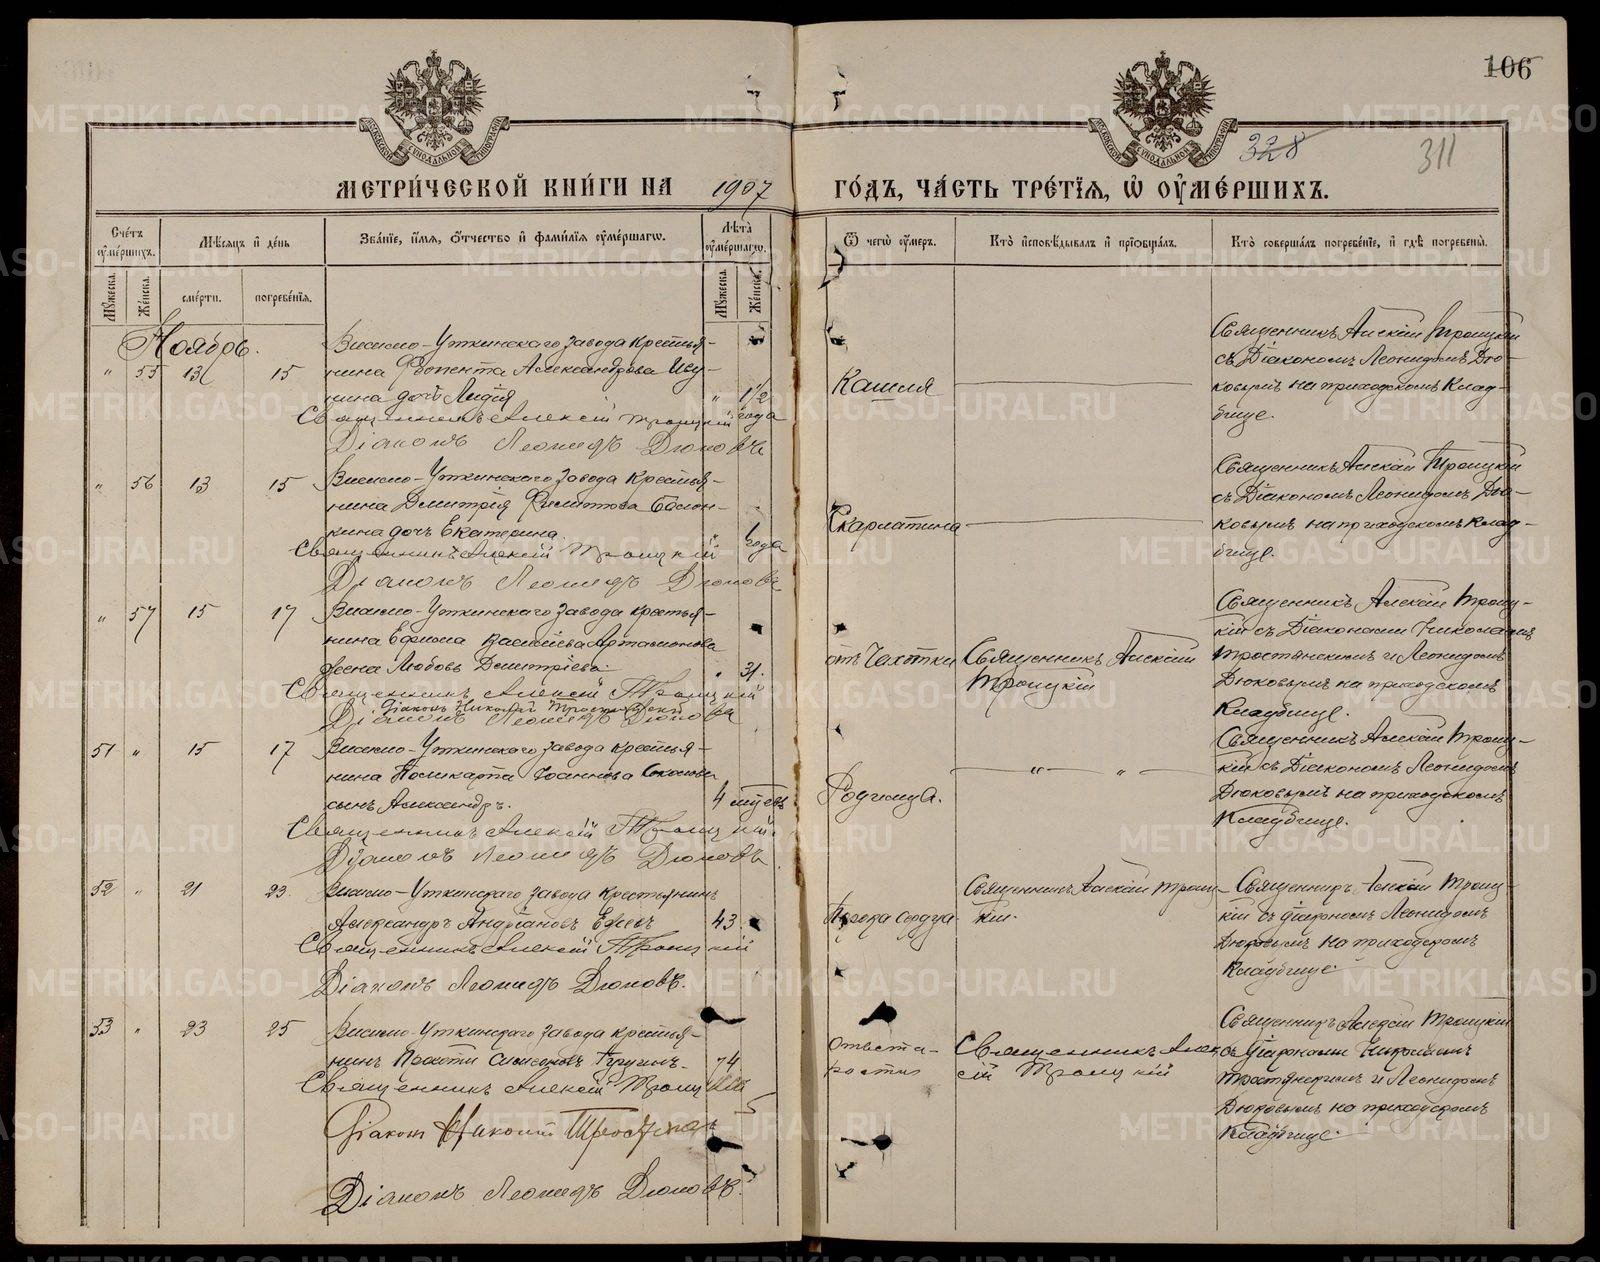 106
328
311
МЕТРИ́ЧЕСКОЙ КНИ́ГИ НА 1907 ГО́ДЪ, ЧА́СТЬ ТРЕ́ТЇѦ, Ѡ҆ ОУ҆МЕ́РШИХЪ.
Счетъ оумершихъ.
Мѣсяцъ и день
Званіе, имя, отчество и фамилія оумершагѡ.
Лѣта оумершагѡ.
Ѿ чегѡ оумеръ.
Кто исповѣдывалъ и пріобщалъ.
Кто совершалъ погребеніе, и гдѣ погребены.
Мужеска.
Женска.
смерти.
погребенія.
Мужеска.
Женска.
Ноябрь.
" 55 13 15
Висимо-Уткинскаго завода крестья-
нина Александрова
дочь Лидія
" 1 1/2 года
Священникъ Алексій Троицкій
Діаконъ Леонидъ Дюковъ
Кашля
Священникъ Алексій Троицкій
съ Діакономъ Леонидомъ Дю-
ковымъ на приходскомъ клад-
бище.
" 56 13 15
Висимо-Уткинскаго завода крестья-
нина Димитрія Филиппова
кина дочь Екатерина.
" 1 года
Священникъ Алексій Троицкій
Діаконъ Леонидъ Дюковъ
Скарлатина
Священникъ Алексій Троицкій
съ Діакономъ Леонидомъ Дю-
ковымъ на приходскомъ клад-
бище.
" 57 15 17
Висимо-Уткинскаго завода крестья-
нина Ефима Васильева Артамонова
жена Любовь Димитріева.
" 31.
Священникъ Алексій Троицкій
Діаконъ Николай
Діаконъ Леонидъ Дюковъ
отъ Чахотки
Священникъ Алексій
Троицкій
Священникъ Алексій Троиц-
кій съ Діаконами Николаемъ
и Леонидомъ
Дюковымъ на приходскомъ
кладбище.
51 " 15 17
Висимо-Уткинскаго завода крестья-
нина Поликарпа Іоаннова
сынъ Александръ.
4 мѣсяц.
Священникъ Алексій Троицкій
Діаконъ Леонидъ Дюковъ
Родимца.
" "
Священникъ Алексій Троиц-
кій съ Діакономъ Леонидомъ
Дюковымъ на приходскомъ
кладбище.
52 " 21 23.
Висимо-Уткинскаго завода крестьянинъ
Александръ Андріановъ
43
Священникъ Алексій Троицкій
Діаконъ Леонидъ Дюковъ.
Порока сердца
Священникъ Алексій Троиц-
кій.
Священникъ Алексій Троиц-
кій съ діакономъ Леонидомъ
Дюковымъ на приходскомъ
кладбище.
53 " 23 25
Висимо-Уткинскаго завода крестья-
нинъ
74
Священникъ Алексій Троицкій
Діаконъ Николай
Діаконъ Леонидъ Дюковъ.
Отъ ста-
рости
Священникъ Алек-
сій Троицкій
Священникъ Алексій Троицкій
съ діаконами Николаемъ
и Леонидомъ
Дюковымъ на приходскомъ
кладбище.